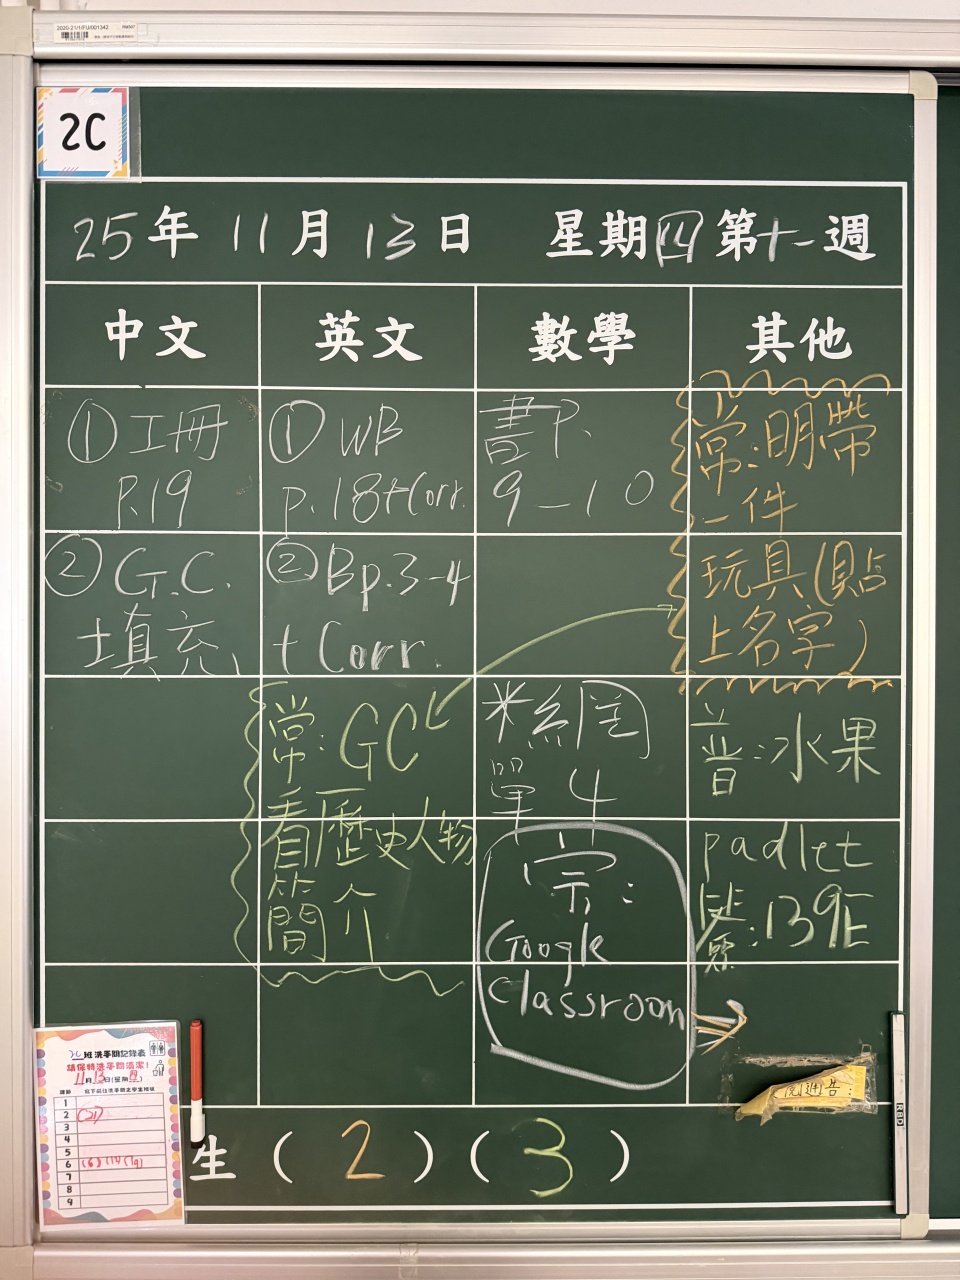 2020-21/1/FU/001342
2C
25年 11月 13日 星期四 第十一週
中文
英文
數學
其他
① 工冊
P.19
② G.C.
填充
① WB
p.18+Corr.
② Bp.3-4
+ Corr.
常:GC
看歷史人物
簡介
書P.
9-10
*網
單 4
宗:
Google
Classroom
常:明帶
一件
玩具(貼
上名字)
普:水果
padlet
:139E
2C班洗手間記錄表
請保持洗手間清潔!
11月13日(星期四)
1
2 (21)
3
4
5
6
7
8
9
生 ( 2 ) ( 3 )